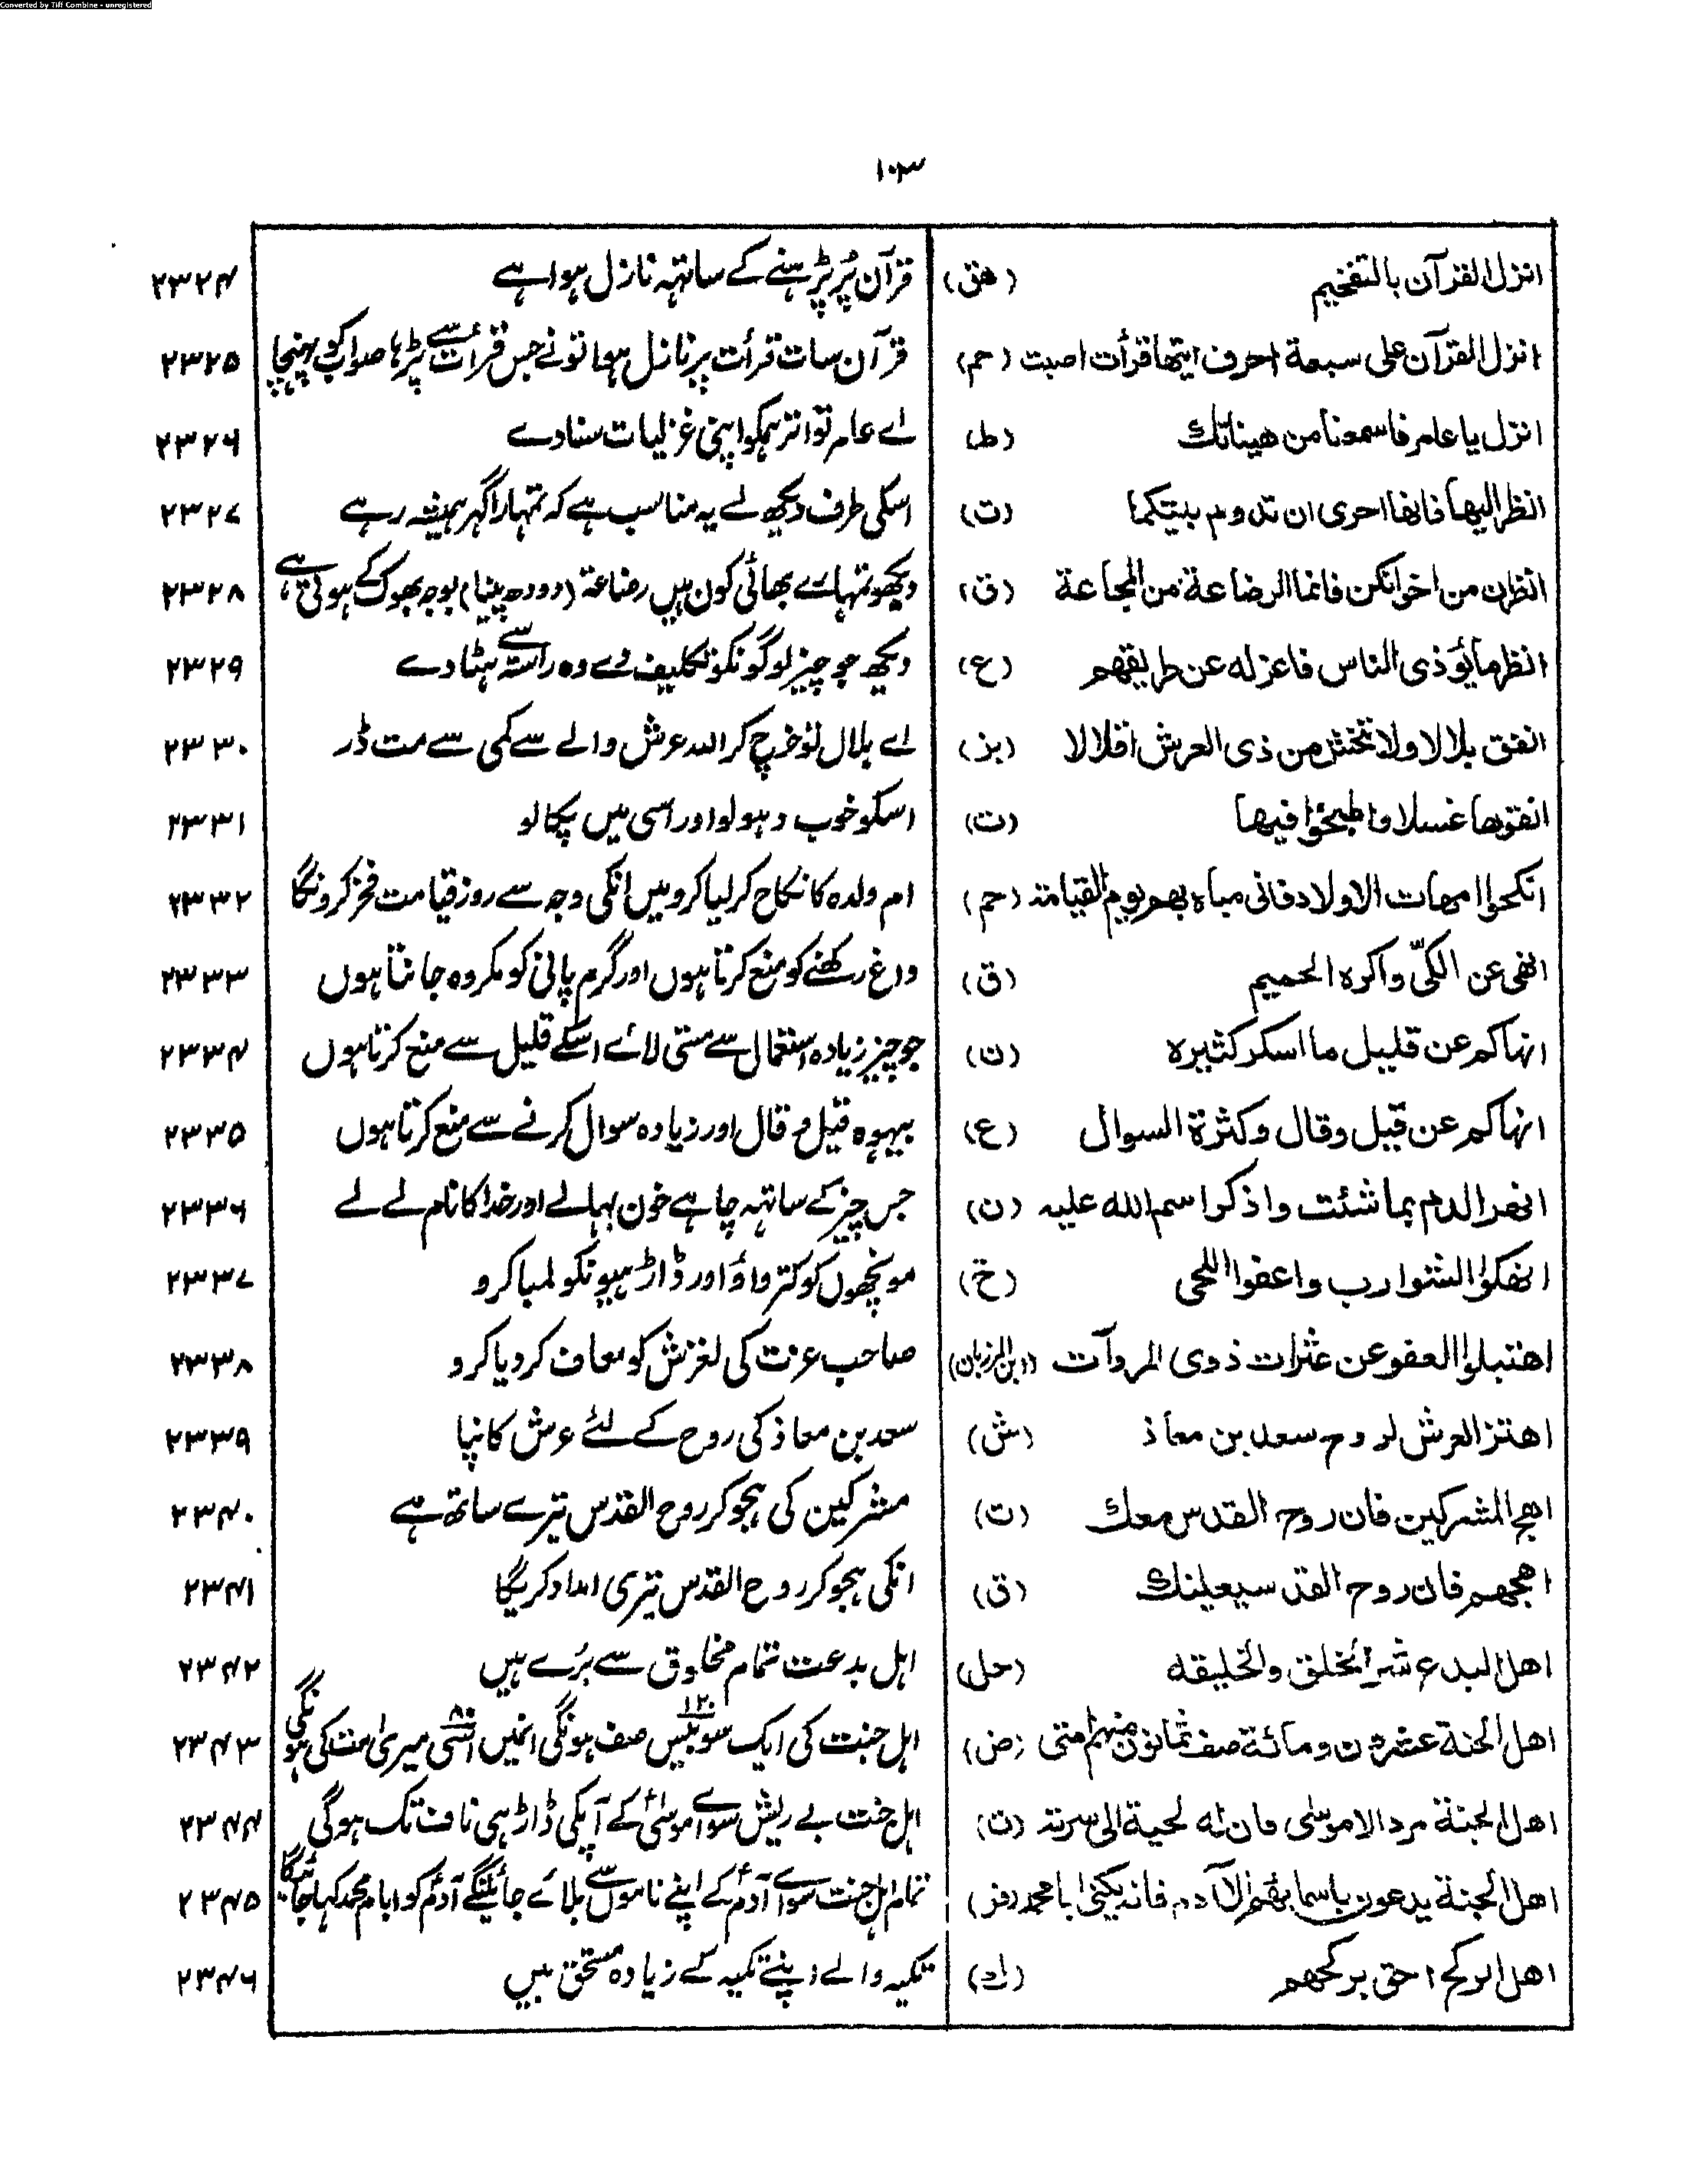 Converted by Tiff Combine - unregistered
۱۰۳
انزل القرآن بالتفخیم (هق) قرآن پُر پڑہنے کے ساتہہ نازل ہوا ہے ۲۳۲۴
انزل القرآن علی سبعة احرف ایتها قرأت اصبت (حم) قرآن سات قرأت پر نازل ہوا تو نے جس قرأت سے پڑہا صواب کو پہنچا ۲۳۲۵
انزل یا عامر فاسمعنا من هیناتک (ط) اے عامر تو اتر ہمکو اپنی غزلیات سنا دے ۲۳۲۶
انظر الیها فانها احری ان تدوم بینکما (ت) اسکی طرف دیکھ لے یہ مناسب ہے کہ تمہارا گہر ہمیشہ رہے ۲۳۲۷
انظرن من اخوانکن فانما الرضاعة من المجاعة (ق) دیکھو تمہارے بھائی کون ہیں رضاعة (دودھ پینا) بوجہ بھوک کے ہوتی ہے ۲۳۲۸
انظر ما یؤذی الناس فاعزله عن طریقهم (ع) دیکھ جو چیز لوگونکو تکلیف دے وہ راستہ سے ہٹا دے ۲۳۲۹
انفق بلالا ولا تخش من ذی العرش اقلالا (بز) اے بلال تو خرچ کر اللہ عرش والے سے کمی سے مت ڈر ۲۳۳۰
انقوها غسلا واطبخوا فیها (ت) اسکو خوب دہولو اور اسی میں پکالو ۲۳۳۱
انکحوا امهات الاولاد فانی مباه بهم یوم القیامة (حم) ام ولدہ کا نکاح کر لیا کرو میں انکی وجہ سے روز قیامت فخر کرونگا ۲۳۳۲
انهی عن الکیّ واکره الحمیم (ق) داغ رکھنے کو منع کرتا ہوں اور گرم پانی کو مکروہ جانتا ہوں ۲۳۳۳
انهاکم عن قلیل ما اسکر کثیره (ن) جو چیز زیادہ استعمال سے مستی لائے اسکے قلیل سے منع کرتا ہوں ۲۳۳۴
انهاکم عن قیل وقال وکثرة السوال (ع) بیہوہ قیل و قال اور زیادہ سوال کرنے سے منع کرتا ہوں ۲۳۳۵
انهر الدم بما شئت واذکر اسم الله علیه (ن) جس چیز کے ساتہہ چاہے خون بہالے اور خدا کا نام لے لے ۲۳۳۶
انهکوا الشوارب واعفوا اللحی (خ) مونچھوں کو کترواؤ اور ڈاڑہیونکو لمبا کرو ۲۳۳۷
اهتبلوا العفو عن عثرات ذوی المروآت (ابن المرزبان) صاحب عزت کی لغزش کو معاف کر دیا کرو ۲۳۳۸
اهتز العرش لروح سعد بن معاذ (ش) سعد بن معاذ کی روح کے لئے عرش کانپا ۲۳۳۹
اهج المشرکین فان روح القدس معک (ت) مشرکین کی ہجو کر روح القدس تیرے ساتھ ہے ۲۳۴۰
اهجهم فان روح القد سیعلینک (ق) انکی ہجو کر روح القدس تیری امداد کریگا ۲۳۴۱
اهل البدع شر الخلق والخلیقه (حل) اہل بدعت تمام مخلوق سے برُے ہیں ۲۳۴۲
اهل الجنة عشرون ومائة صف ثمانون منهم امتی (ض) اہل جنت کی ایک سو بیس ۱۲۰ صف ہونگی انمیں اسّی ۸۰ میری امت کی ہونگی ۲۳۴۳
اهل الجنة مرد الا موسٰی فان له لحیة الی سرته (ن) اہل جنت بے ریش سوائے موسٰیؑ کے آپکی ڈاڑہی ناف تک ہوگی ۲۳۴۴
اهل الجنة یدعون باسمائهم الا آدم فانه یکنی ابا محمد (فز) تمام اہل جنت سوائے آدمؑ کے اپنے ناموں سے بلائے جائینگے آدمؑ کو ابا محمد کہا جائیگا ۲۳۴۵
اهل الرکح احق برکحهم (ك) تکیہ والے اپنے تکیہ کے زیادہ مستحق ہیں ۲۳۴۶